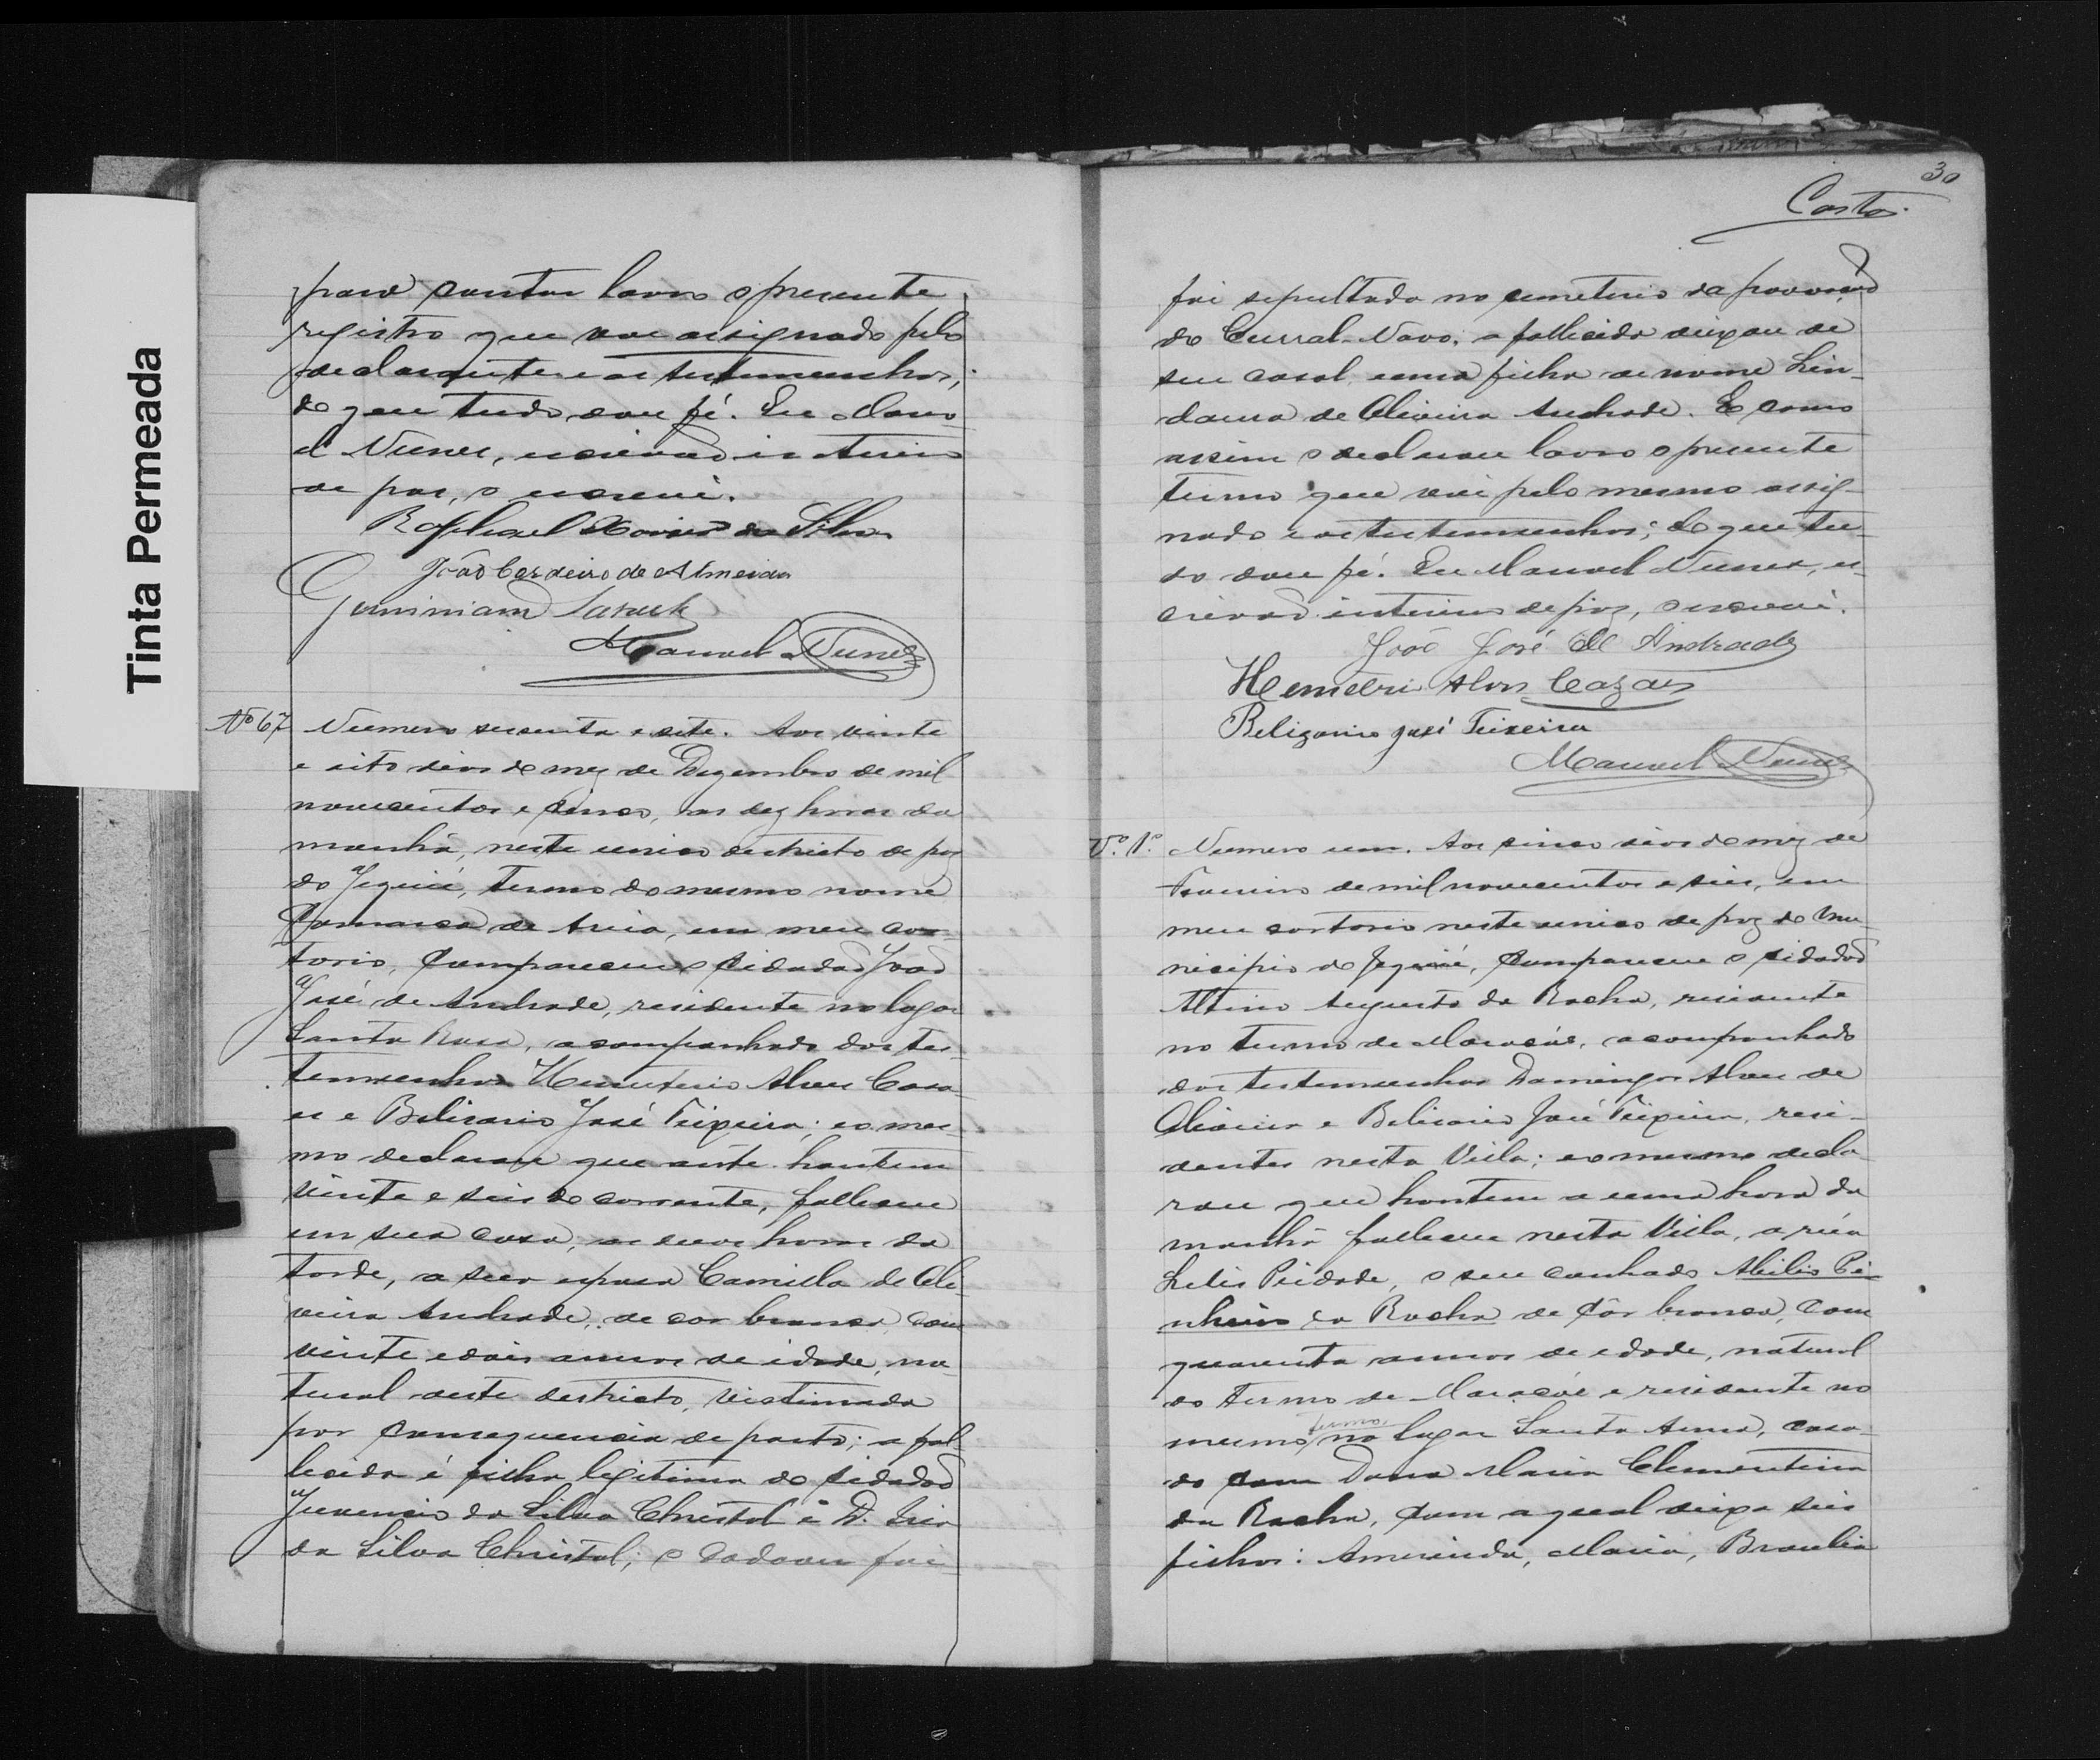 Tinta Permeada
para constar lavro o presente
registro que vae assignado pelo
declarante e as testemunhas;
do que tudo dou fé. Eu Mano-
el Nunes, escrivão interino
de paz, o escrevi.
Raphael Xavier da Silva
João Cordeiro de Almeida
Geminiano
Manoel Nunes
Nº 67 Numero sessenta e sete. Aos vinte
e oito dias do mez de Dezembro de mil
novecentos e cinco, as dez horas da
manhã, neste unico destricto de paz
do Jequié, Termo do mesmo nome
Comarca de Areia, em meu car-
torio, compareceu o cidadão João
José de Andrade, residente no lugar
Santa Rosa, acompanhado das tes-
temunhas Hemeterio Alves Casa-
es e Belisario José Teixeira; e o mes-
mo declarou que ante hontem
vinte e seis do corrente, falleceu
em sua casa, as duas horas da
tarde, a sua esposa Camilla de Oli-
veira Andrade, de cor branca, com
vinte e dois annos de idade, na-
tural deste destricto, victimada
por consequencia de parto; a fal-
lecida é filha legitima do cidadão
Juvencio da Silva Christal e D. Iria
da Silva Christal; o cadaver foi
30
Costa.
foi sepultado no cemeterio da povoação
do Curral-Novo; a fallecida deixou de
seu casal uma filha de nome Lin-
daura de Oliveira Andrade. E como
assim o declarou lavro o presente
termo que vai pelo mesmo assig-
nado e as testemunhas; do que tu-
do dou fé. Eu Manoel Nunes, es-
crivão interino de paz, o escrevi.
João José de Andrade
Hemeterio Alves Cazaes
Belizario José Teixeira
Manoel Nunes
Nº 1º Numero um. Aos cinco dias do mez de
Janeiro de mil novecentos e seis, em
meu cartorio neste unico de paz do Mu-
nicipio de Jequié, compareceu o cidadão
Altino Augusto da Rocha, residente
no termo de Maracás, acompanhado
das testemunhas Domingos Alves de
Oliveira e Belisario José Teixeira, resi-
dentes nesta Villa; e o mesmo decla-
rou que hontem a uma hora da
manhã falleceu nesta Villa, a rua
Lelis Piedade, o seu cunhado Abilio Pi-
nheiro da Rocha de côr branca, com
quarenta annos de edade, natural
do termo de Maracás e residente no
mesmo termo no lugar Santa Anna, casa-
do com Dona Maria Clementina
da Rocha, com a qual deixa seis
filhos: Amerinda, Maria, Braulia